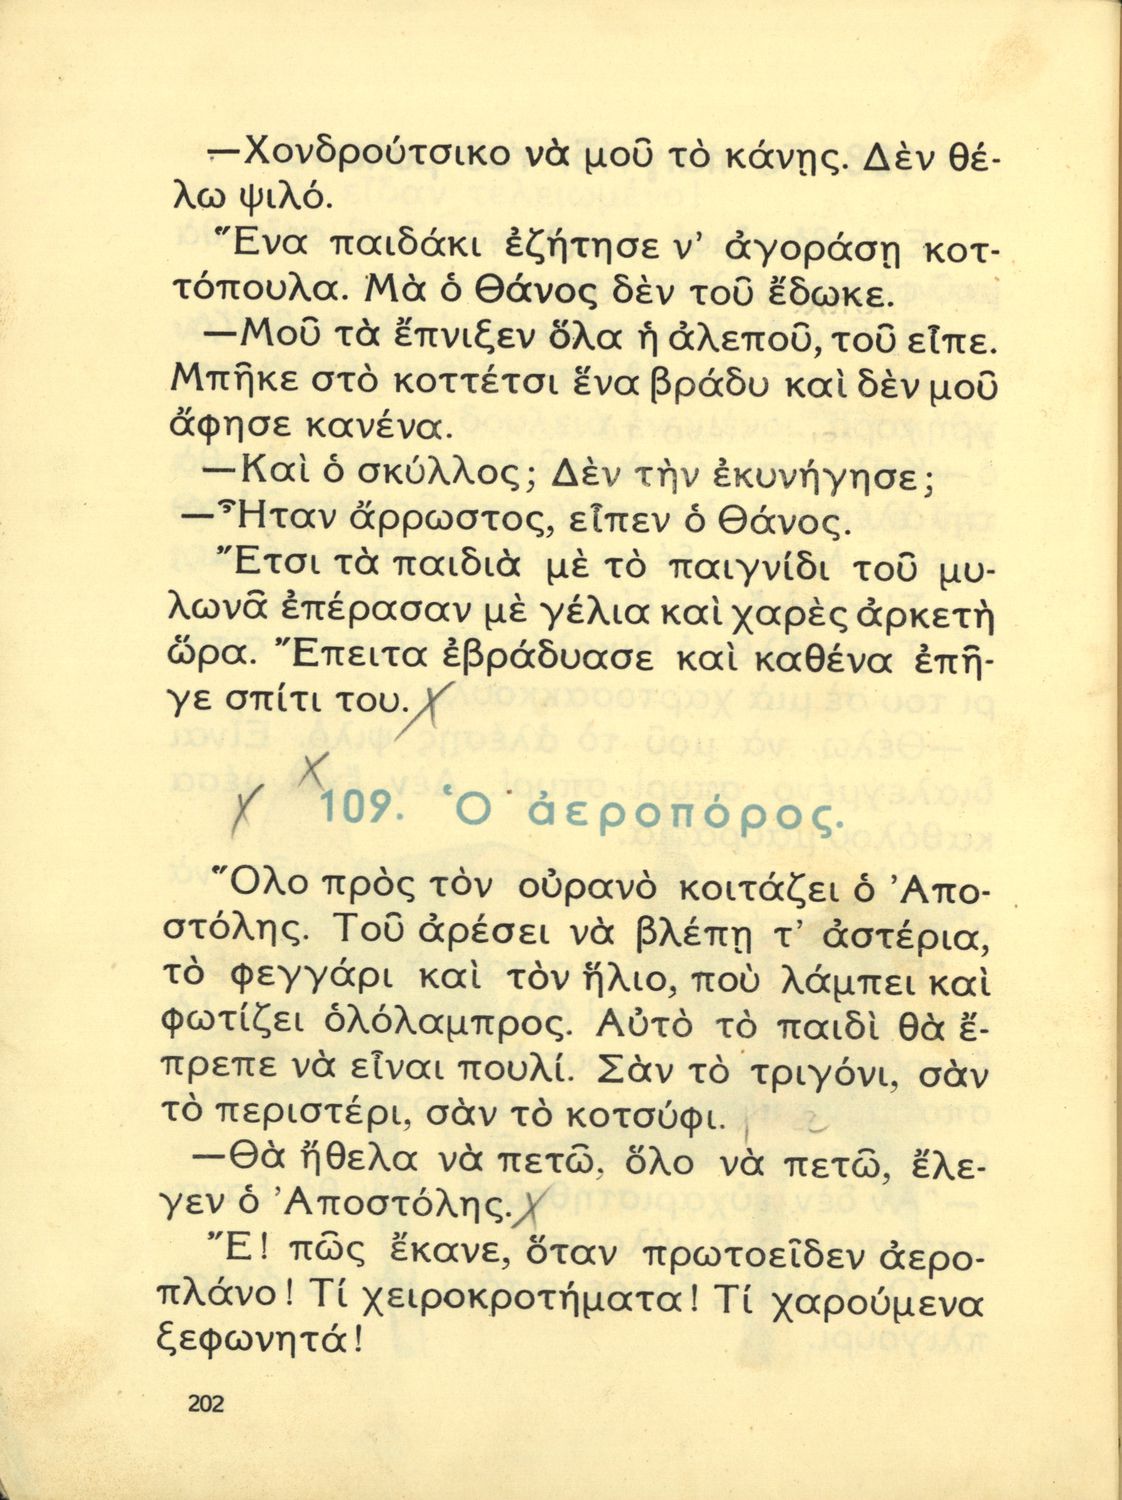 —Χονδρούτσικο νὰ μοῦ τὸ κάνῃς. Δὲν θέ-
λω ψιλό.
Ἕνα παιδάκι ἐζήτησε ν' ἀγοράσῃ κοτ-
τόπουλα. Μὰ ὁ Θάνος δὲν τοῦ ἔδωκε.
—Μοῦ τὰ ἔπνιξεν ὅλα ἡ ἀλεποῦ, τοῦ εἶπε.
Μπῆκε στὸ κοττέτσι ἕνα βράδυ καὶ δὲν μοῦ
ἄφησε κανένα.
—Καὶ ὁ σκύλλος; Δὲν τὴν ἐκυνήγησε;
—Ἦταν ἄρρωστος, εἶπεν ὁ Θάνος.
Ἔτσι τὰ παιδιὰ μὲ τὸ παιγνίδι τοῦ μυ-
λωνᾶ ἐπέρασαν μὲ γέλια καὶ χαρὲς ἀρκετὴ
ὥρα. Ἔπειτα ἐβράδυασε καὶ καθένα ἐπῆ-
γε σπίτι του.
109. Ὁ ἀεροπόρος.
Ὅλο πρὸς τὸν οὐρανὸ κοιτάζει ὁ Ἀπο-
στόλης. Τοῦ ἀρέσει νὰ βλέπῃ τ' ἀστέρια,
τὸ φεγγάρι καὶ τὸν ἥλιο, ποὺ λάμπει καὶ
φωτίζει ὁλόλαμπρος. Αὐτὸ τὸ παιδὶ θὰ ἔ-
πρεπε νὰ εἶναι πουλί. Σὰν τὸ τριγόνι, σὰν
τὸ περιστέρι, σὰν τὸ κοτσύφι.
—Θὰ ἤθελα νὰ πετῶ, ὅλο νὰ πετῶ, ἔλε-
γεν ὁ Ἀποστόλης.
Ἔ! πῶς ἔκανε, ὅταν πρωτοεῖδεν ἀερο-
πλάνο! Τί χειροκροτήματα! Τί χαρούμενα
ξεφωνητά!
202